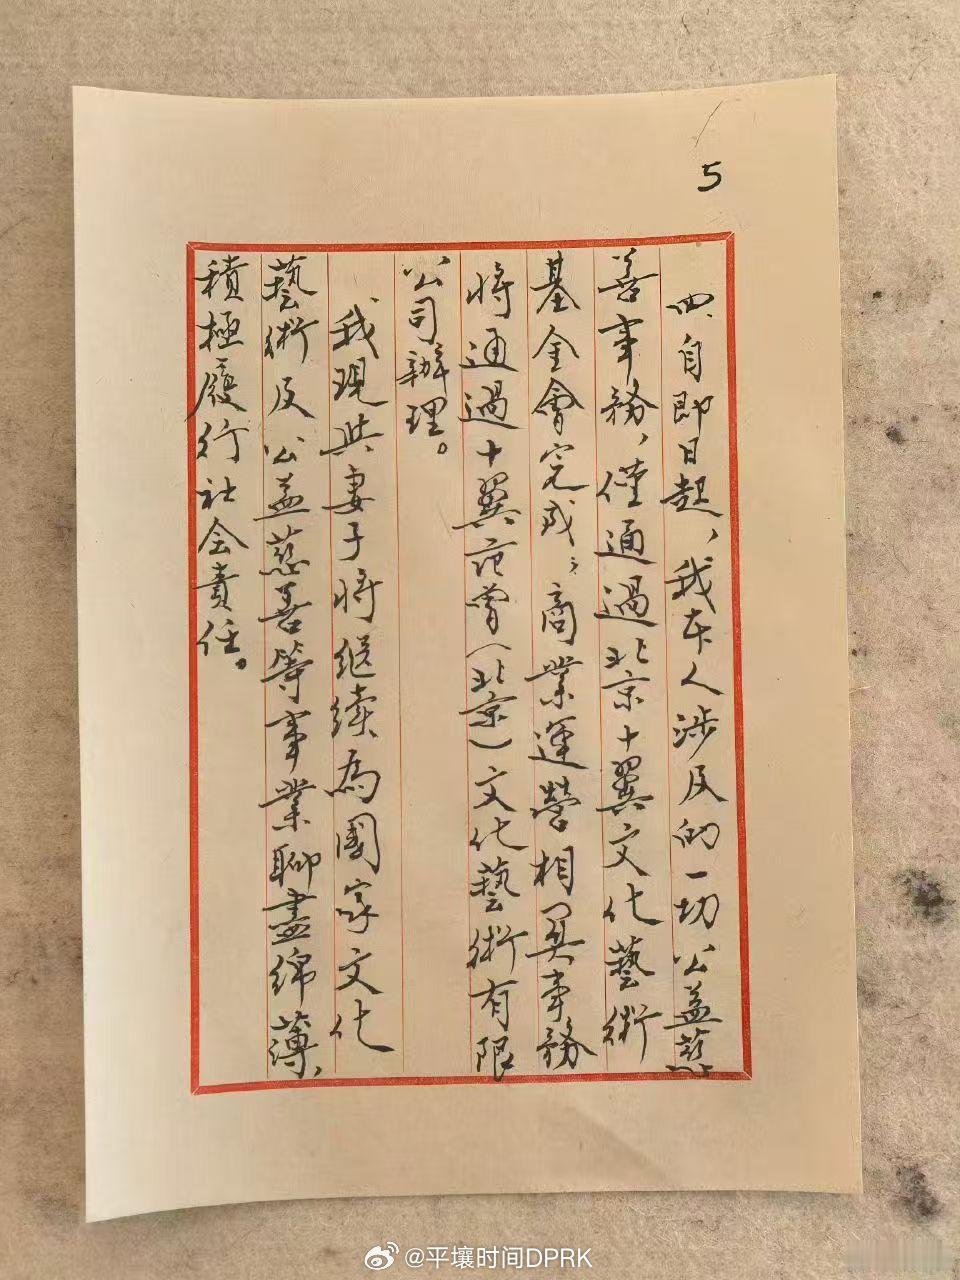 5
四、自即日起，我本人涉及的一切公益慈
善事務，僅通過北京十翼文化藝術
基金會完成；商業運營相関事務
將通過十翼范曾（北京）文化藝術有限
公司辦理。
我現與妻子將继续為國家文化
藝術及公益慈善等事業聊盡綿薄，
積極履行社会責任。
@平壤时间DPRK